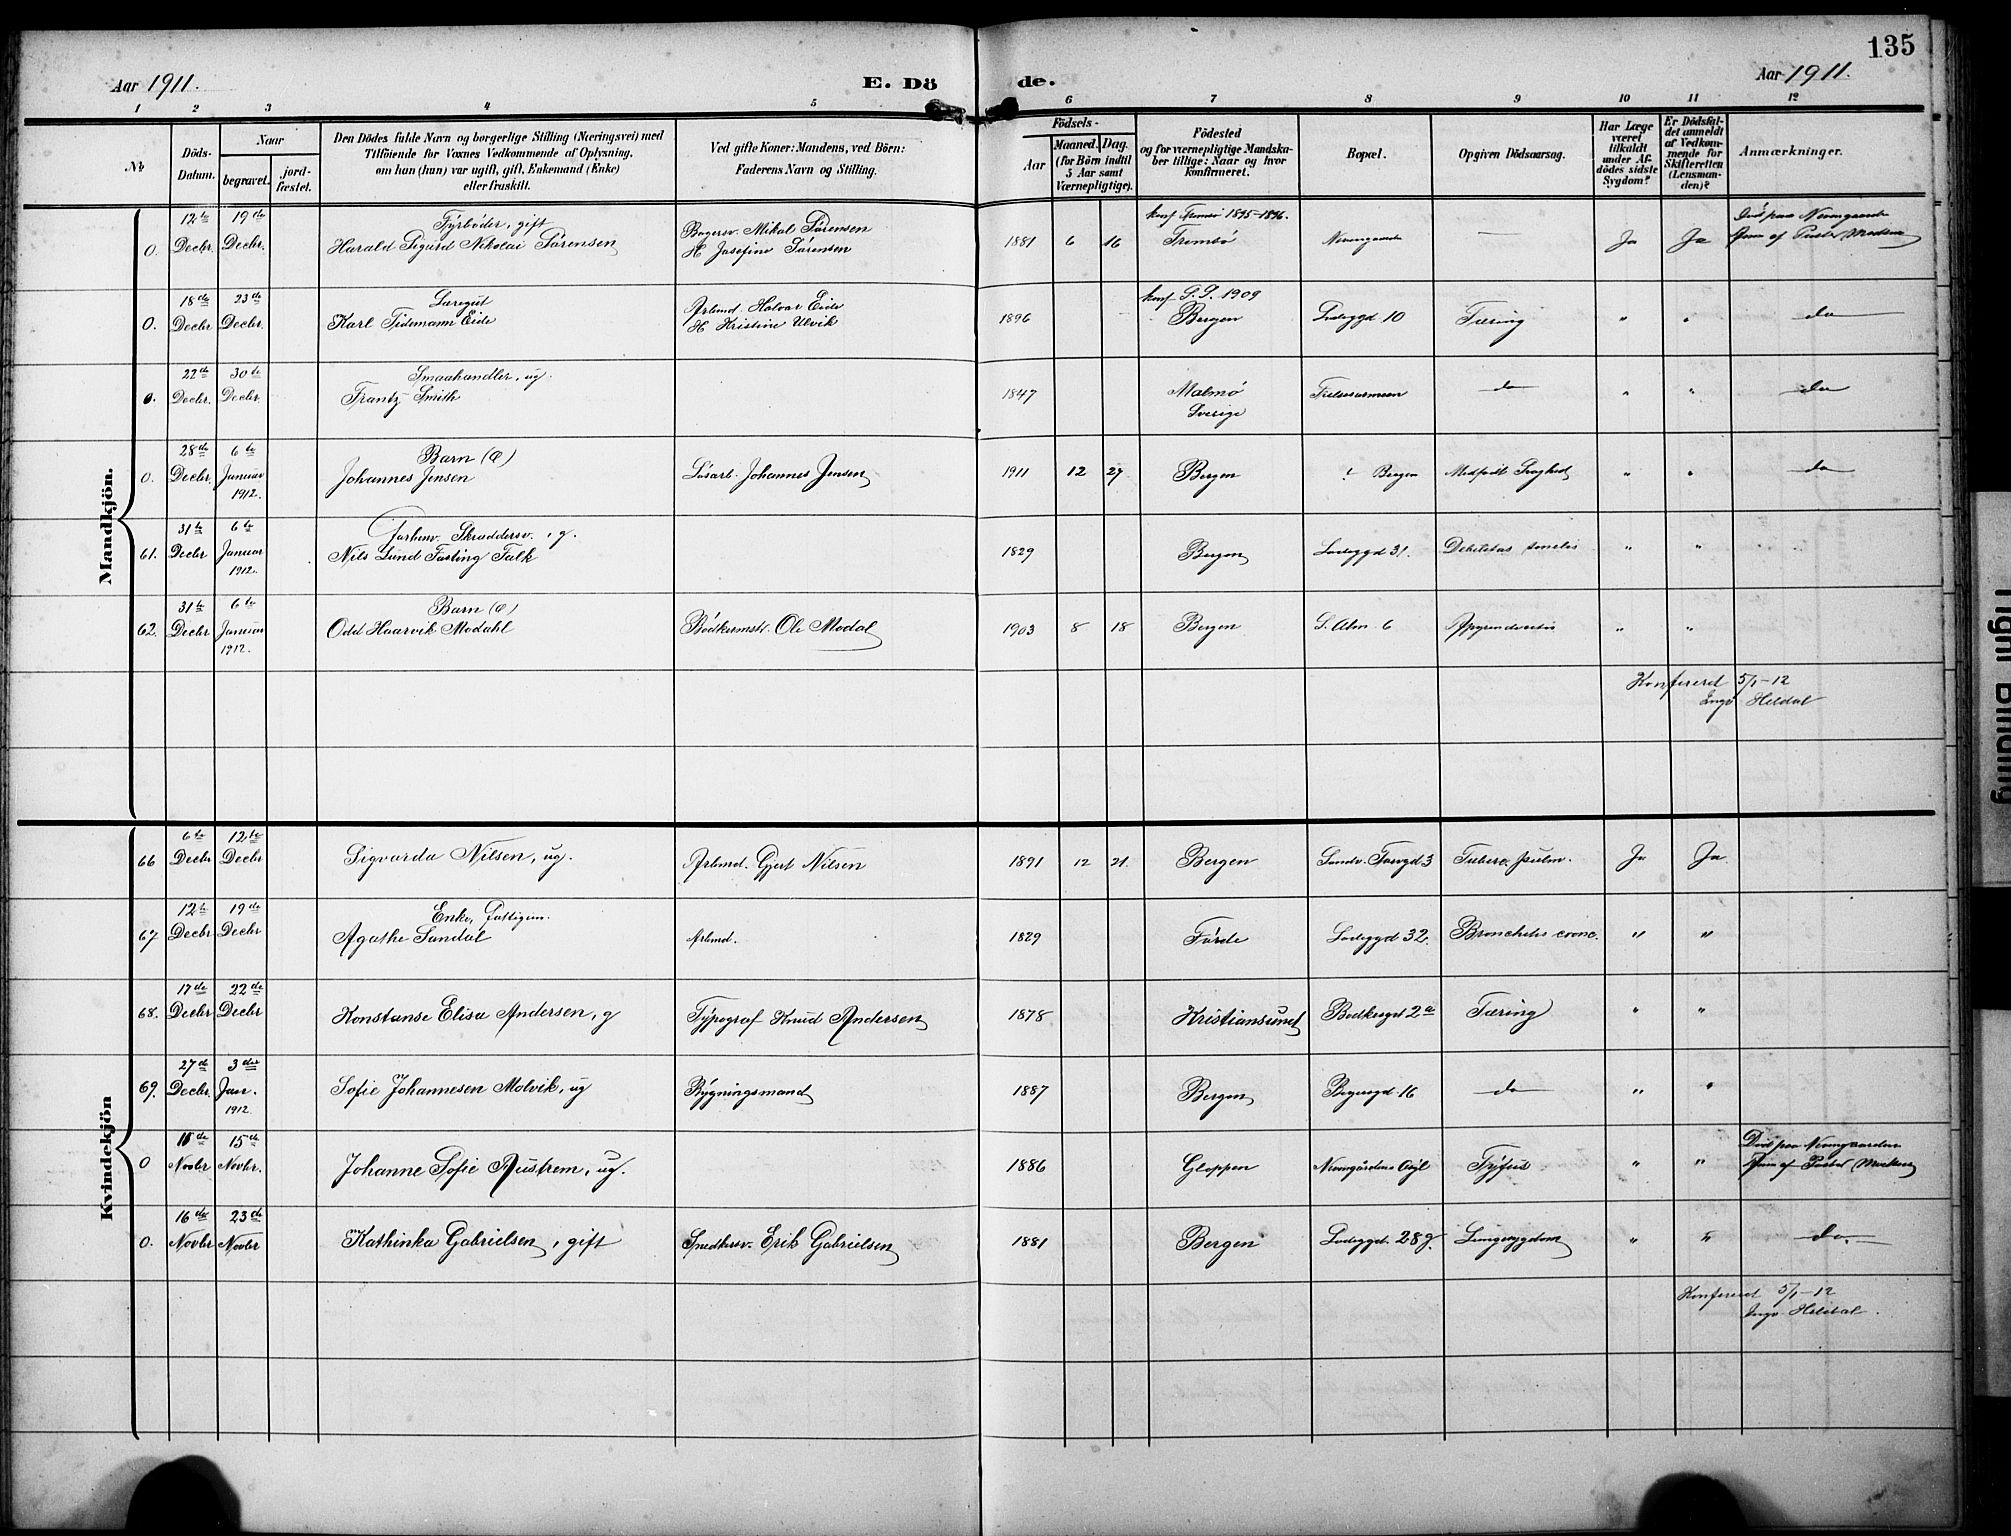 135
Aar 1911.
E. Dö de.
Aar 1911.
1 2 3 4 5 6 7 8 9 10 11 12
No
Döds-Datum.
Naar
begravet.
jord-fæstet.
Den Dödes fulde Navn og borgerlige Stilling (Næringsvei) med
Tilföiende for Voxnes Vedkommende af Oplysning,
om han (hun) var ugift, gift, Enkemand (Enke)
eller fraskilt.
Ved gifte Koner: Mandens, ved Börn:
Faderens Navn og Stilling.
Födsels-
Aar
Maaned. Dag.
(for Börn indtil
5 Aar samt
Værnepligtige).
Födested
og for værnepligtige Mandska-
ber tillige: Naar og hvor
konfirmeret.
Bopæl.
Opgiven Dödsaarsag.
Har Læge
været
tilkaldt
under Af-
dödes sidste
Sygdom?
Er Dödsfal-
det anmeldt
af Vedkom-
mende for
Skifteretten
(Lensman-
den)?
Anmærkninger.
Mandkjön.
12te 19de Fyrbøder, gift Bagersv. Mikal Sørensen konf Tromsø 1895-1896. Død paa Nevengaarden
0. Decbr. Decbr. Harald Sigurd Nikolai Sørensen H Josefine Sørensen 1881 6 16 Tromsø Nevengaarden — Ja Ja Anm af Pastor Madsen
18de 23de Læregut Arbmd. Halvar Eide konf S.S. 1909
0. Decbr Decbr. Karl Tidemann Eide H Kristine Ulvik 1896 Bergen Ladeggd 10 Tæring " " do
22de 30te Smaahandler, ug.
0. Decbr. Decbr. Frantz Smith 1847 Malmø Sverige Frelsesarmeen do " " do
28de 6te Barn (e)
0. Decbr. Januar 1912. Johannes Jensen Løsarb. Johannes Jensen 1911 12 27 Bergen ! Bergen Medfødt Svaghed " " do
31te 6te Forhenv. Skræddersv., g.
61. Decbr Januar 1912. Nils Lund Fasting Falk 1829 Bergen Ladeggd 31. Debilitas senilis " "
31te 6te Barn (e)
62. Decbr Januar 1912. Odd Haarvik Modahl Bødkermstr. Ole Modal 1903 8 18 Bergen S. Alm 6 " "
Konfererd 5/1-12
Ingv Heldal
Kvindekjön
6te 12te
66 Decbr Decbr Sigvarda Nilsen, ug. Arbmd. Gjert Nilsen 1891 12 21. Bergen Sandv. Torvgd 3 Tuberc. pulm. Ja Ja
12te 19de Enke, Fattigem.
67 Decbr Decbr Agathe Sandal Arbmd. 1829 Førde Ladeggd 32. Bronchitis cronc. " "
17de 22de
68. Decbr Decbr Konstanse Elisa Andersen, g Typograf Knud Andersen 1878 Kristiansund Bødkergd 2a Tæring " "
27de 3die
69. Decbr. Jan. 1912. Sofie Johannesen Molvik, ug Bygningsmand 1887 Bergen 16 do " "
15de Død paa Nevengaarden
0 Novbr Novbr. Johanne Sofie Austrem, ug. 1886 Gloppen Tyfus " " Anm af Pastor Madsen
16de 23de
0. Novbr Novbr Kathinka Gabrielsen, gift Snedkersv. Erik Gabrielsen 1881 Bergen Ladeggd. 28g. Lungesygdom " " do.
Konfererd 5/1-12
Ingv. Heldal.
Tigit Bildnin